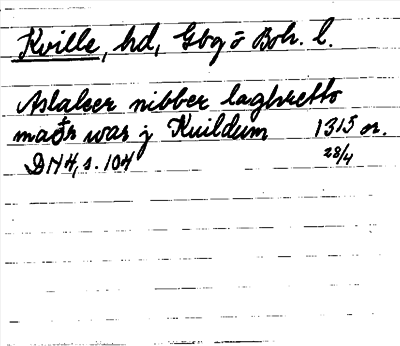 Kville, hd, Gbg o Boh. l.
Aslaker nibber laghretto
maðr war j Kuildum 1315 or.
DN 4, s. 104 28/4